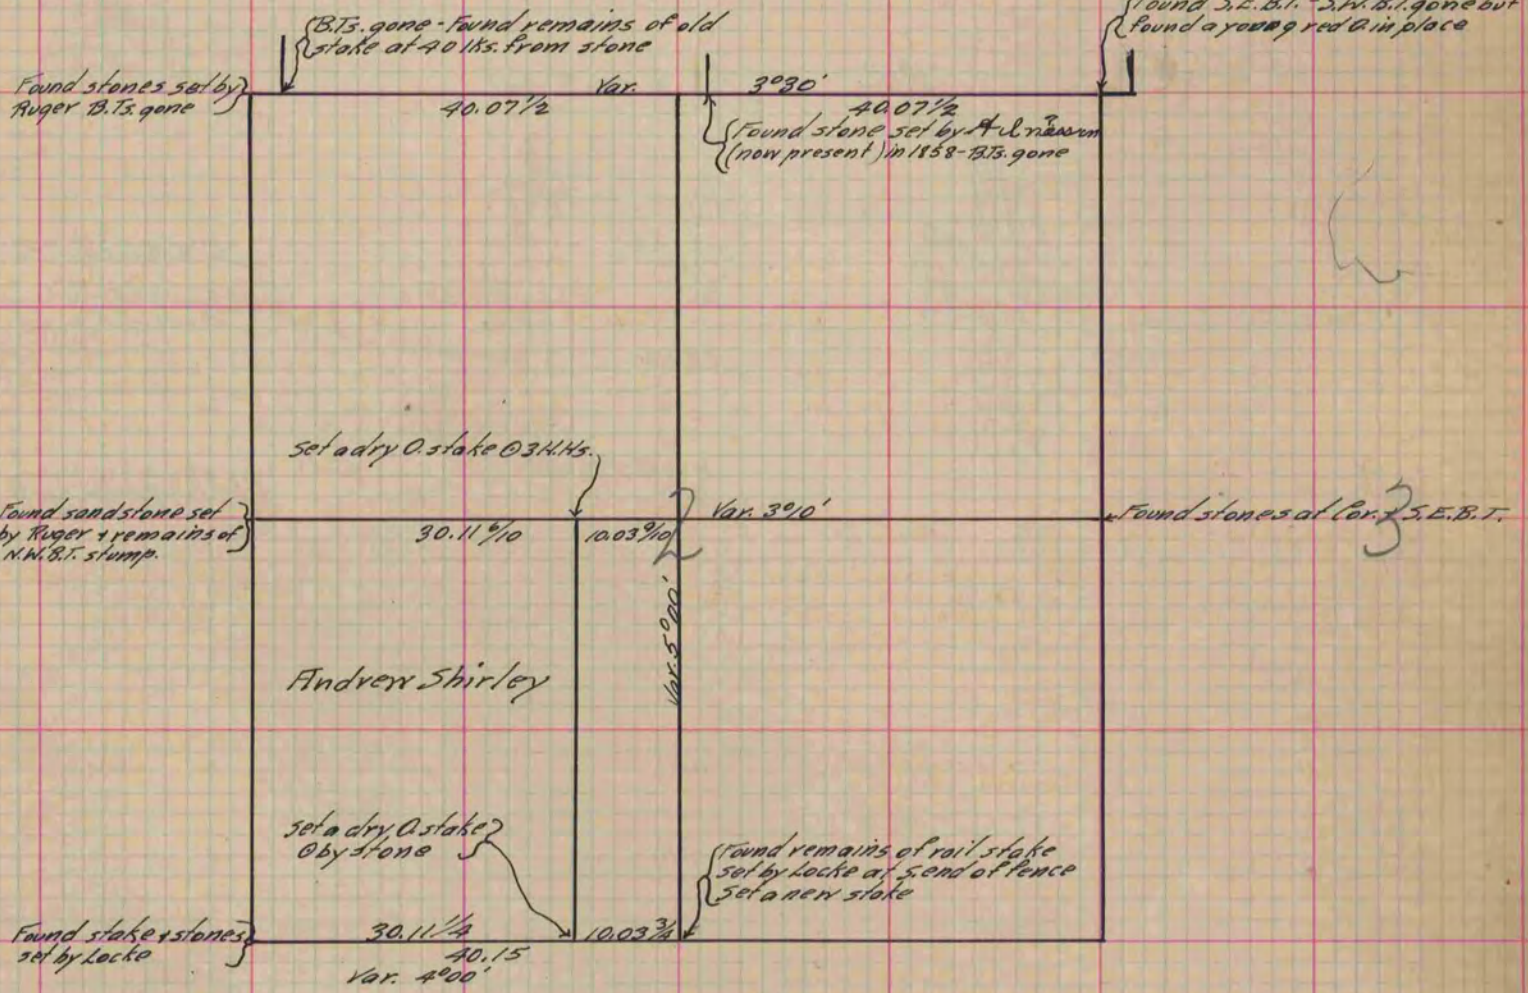 B.Ts. gone - Found remains of old
stake at 40 lks. from stone
Found S.E.B.T. - S.W.B.T. gone but
found a young red O. in place
Found stones set by
Ruger B.Ts. gone
Var. 3°30'
40.07 1/2
40.07 1/2
Found stone set by
(now present) in 1858 - B.Ts. gone
Set a dry O. stake ⊙ 3 H.Hs.
Found sandstone set
by Ruger + remains of
N.W.B.T. stump.
Var. 3°10'
30.11 6/10
10.03 9/10
2
Found stones at Cor. + S.E.B.T.
3
Var. 5°00'
Andrew Shirley
Set a dry O. stake
⊙ by stone
Found remains of rail stake
set by Locke at S. end of fence
Set a new stake
Found stake + stones
set by Locke
30.11 1/4
10.03 3/4
40.15
Var. 4°00'